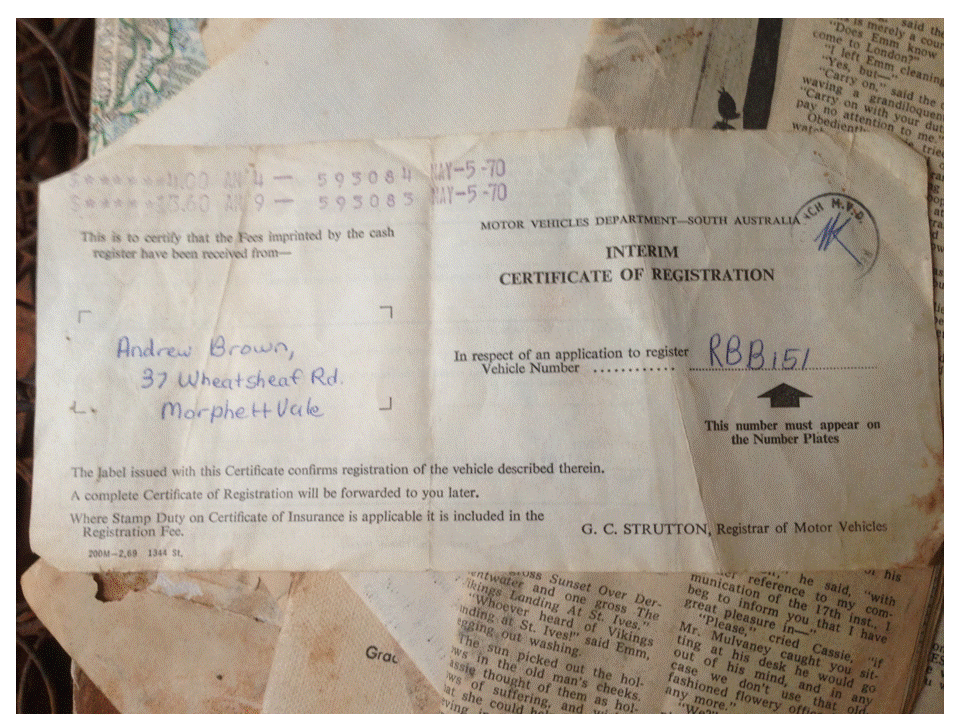 said the
is merely a cour
"Does Emm know
come to London?"
"I left Emm cleaning
"Yes, but—"
"Carry on," said the
waving a grandiloquen
"Carry on with your dut
pay no attention to me."
Obedientl
tried
$*******4.00 AN 4 — 593084 MAY-5-70
$******13.60 AN 9 — 593083 MAY-5-70
M.V.D.
MOTOR VEHICLES DEPARTMENT—SOUTH AUSTRALIA
This is to certify that the Fees imprinted by the cash
register have been received from—
INTERIM
CERTIFICATE OF REGISTRATION
Andrew Brown,
37 Wheatsheaf Rd.
Morphett Vale
In respect of an application to register
Vehicle Number ............ RBB151
This number must appear on
the Number Plates
The label issued with this Certificate confirms registration of the vehicle described therein.
A complete Certificate of Registration will be forwarded to you later.
Where Stamp Duty on Certificate of Insurance is applicable it is included in the
Registration Fee.
G. C. STRUTTON, Registrar of Motor Vehicles
200M—2.69 1344 St.
Grac
ross Sunset Over Der-
entwater and one gross The
ikings Landing At St. Ives."
"Whoever heard of Vikings
nding at St. Ives!" said Emm,
egging out washing.
The sun picked out the hol-
ws in the old man's cheeks.
assie thought of them as hol-
ws of suffering, and
at she could
of his
he said, "with
reference to my com-
munication of the 17th inst., I
beg to inform you that I have
great pleasure in—"
"Please," cried Cassie, "if
Mr. Mulvaney caught you sit-
ting at his desk he would go
out of his mind, and in any
case we don't use that old
fashioned flowery offic
any more."
"We?"